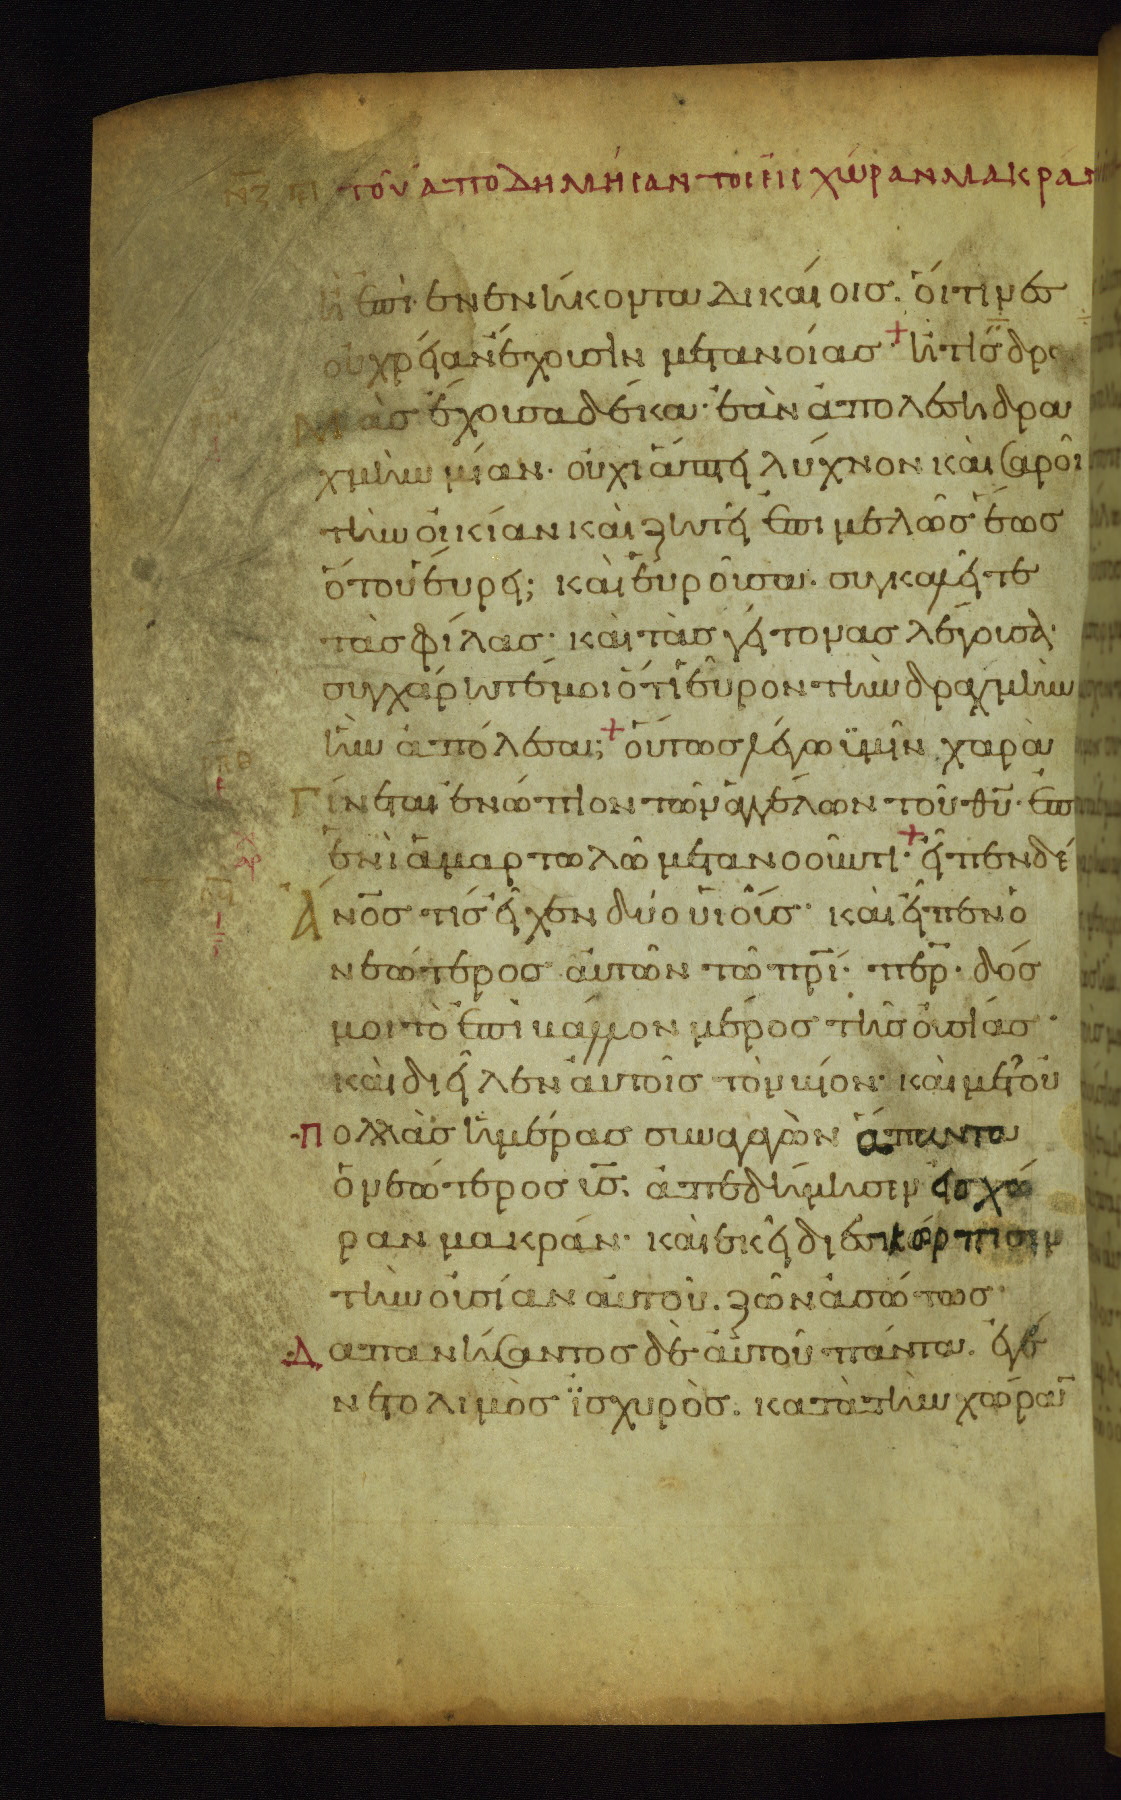 ΝΖ ΠΕΡΙ τοῦ ἀποδημήσαντος εἰς χώραν μακράν
ἢ ἐπὶ ἐνενήκοντα δικαίοις. οἵτινες
οὐ χρείαν ἔχουσιν μετανοίας + ἢ τίς δρα
χμὰς ἔχουσα δέκα· ἐὰν ἀπολέσῃ δρα
χμὴν μίαν· οὐχὶ ἅπτει λύχνον καὶ σαροῖ
τὴν οἰκίαν καὶ ζητεῖ ἐπιμελῶς ἕως
ὅτου εὕρῃ; καὶ εὑροῦσα· συγκαλεῖτε
τὰς φίλας· καὶ τὰς γείτονας λέγουσα·
συγχάρητέ μοι ὅτι εὗρον τὴν δραχμὴν
ἣν ἀπόλεσα; + οὕτως λέγω ὑμῖν χαρὰ
Γίνεται ἐνώπιον τῶν ἀγγέλων τοῦ θυ̅· ἐπὶ
ἑνὶ ἁμαρτωλῷ μετανοοῦντι· + εἶπεν δέ
Ἄνο̅ς τίς εἶχεν δύο υἱούς· καὶ εἶπεν ὁ
νεώτερος αὐτῶν τῷ πρι̅· περ̅· δός
μοι τὸ ἐπιβάλλον μέρος τῆς οὐσίας·
καὶ διεῖλεν αὐτοῖς τὸν βίον· καὶ μετ' οὐ
Πολλὰς ἡμέρας συναγαγὼν ἅπαντα
ὁ νεώτερος υς̅. ἀπεδήμησεν εἰς χώ
ραν μακράν· καὶ ἐκεῖ διεσκόρπισεν
τὴν οὐσίαν αὐτοῦ. ζῶν ἀσώτως·
Δαπανήσαντος δὲ αὐτοῦ πάντα. ἐγέ
νετο λιμὸς ἰσχυρὸς. κατὰ τὴν χώραν